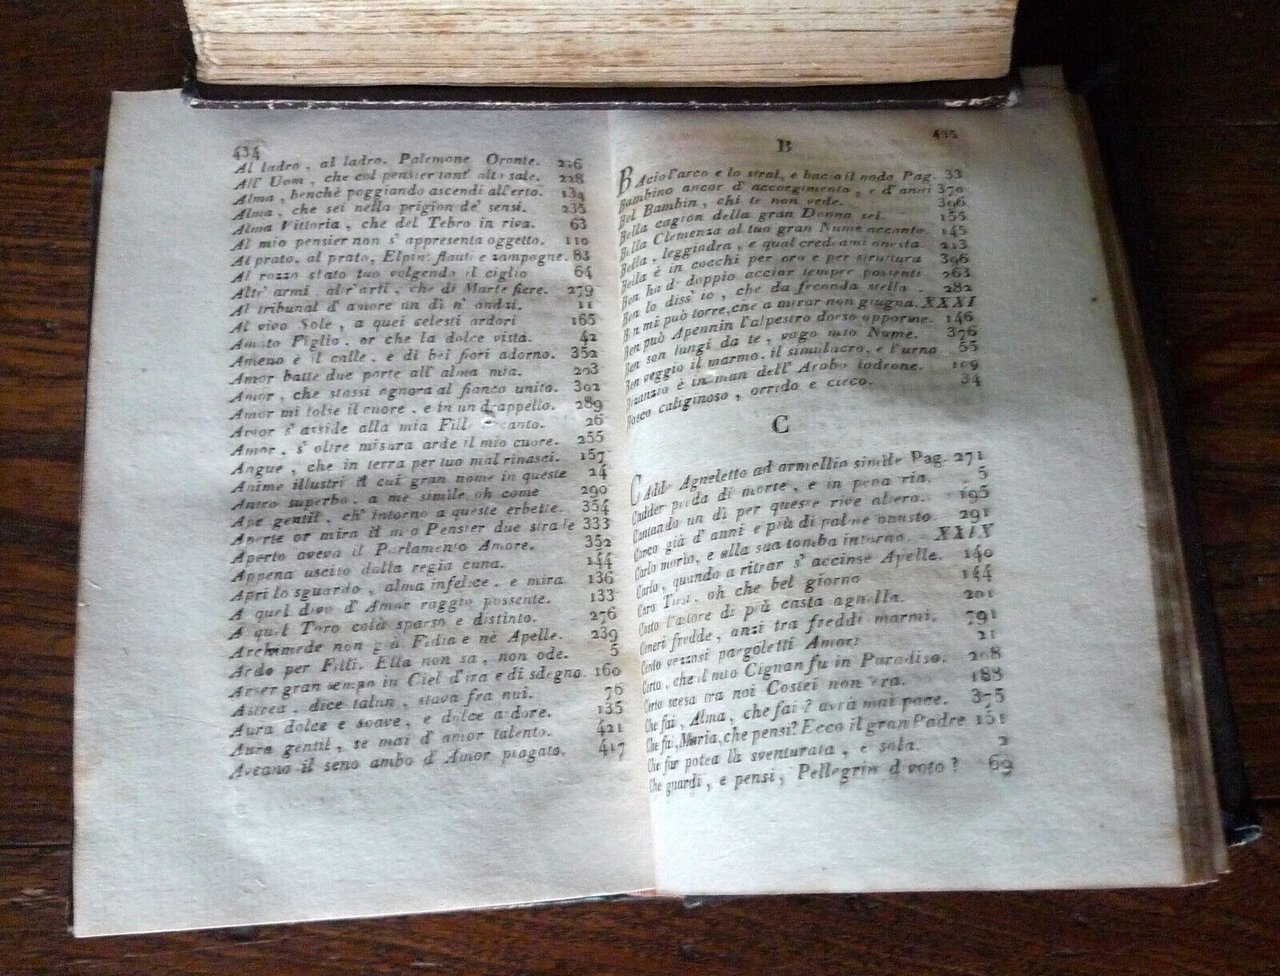 434
Al ladro, al ladro. Palemone Oronte. 226
All' Uom, che col pensier tant' alto sale. 228
Alma, benchè poggiando ascendi all'erto. 134
Alma, che sei nella prigion de' sensi. 235
Alma Vittoria, che del Tebro in riva. 63
Al mio pensier non s' appresenta oggetto. 110
Al prato, al prato, Elpin: flauti e zampogne. 83
Al rozzo stato tuo volgendo il ciglio 64
Altr' armi, altr' arti, che di Marte fiere. 279
Al tribunal d' amore un dì n' andai. 11
Al vivo Sole, a quei celesti ardori 165
Amato Figlio, or che la dolce vista. 42
Ameno è il calle, e di bei fiori adorno. 352
Amor batte due porte all' alma mia. 203
Amor, che stassi ognora al fianco unito. 302
Amor mi tolse il cuore, e in un drappello. 289
Amor s' asside alla mia Filli accanto. 26
Amor, s' oltre misura arde il mio cuore. 255
Angue, che in terra per tuo mal rinasci. 157
Anime illustri il cui gran nome in queste 24
Antro superbo, a me simile oh come 290
Ape gentil, ch' intorno a queste erbette. 354
Aperte or mira il mio Pensier due strade 333
Aperto aveva il Parlamento Amore. 352
Appena uscito dalla regia cuna. 144
Apri lo sguardo, alma infelice, e mira 136
A quel divo d' Amor raggio possente. 133
A quel Toro colà sparso e distinto. 276
Archimede non già Fidia e nè Apelle. 239
Ardo per Filli. Ella non sa, non ode. 5
Arser gran tempo in Ciel d'ira e di sdegno. 160
Astrea, dice talun, stava fra nui. 76
Aura dolce e soave, e dolce ardore. 135
Aura gentil, se mai d' amor talento. 421
Aveano il seno ambo d' Amor piagato. 417
435
B
BAcio l'arco e lo stral, e bacio il nodo Pag. 33
Bambino ancor d' accorgimento, e d' anni 370
Bel Bambin, chi te non vede. 396
Bella cagion della gran Donna sei. 155
Bella Clemenza al tuo gran Nume accanto. 145
Bella, leggiadra, e qual credeami onesta 213
Bella è in cocchi per oro e per struttura 396
Ben ha di doppio acciar tempre possenti 263
Ben lo diss' io, che da feconda stella 282
Ben mi può torre, che a mirar non giugna. XXXI
Ben può Apennin l'alpestro dorso opporme. 146
Ben son lungi da te, vago mio Nume. 376
Ben veggio il marmo, il simulacro, e l'urna 55
Bizanzio è in man dell' Arabo ladrone. 109
Bosco caliginoso, orrido e cieco. 34
C
CAdde Agneletto ad armellin simile Pag. 271
Cadder preda di morte, e in pena ria. 5
Cantando un dì per queste rive albero. 195
Carco già d' anni e più di palme onusto 291
Carlo morio, e alla sua tomba intorno. XXIX
Carlo, quando a ritrar s' accinse Apelle. 140
Caro Tirsi, oh che bel giorno 144
Casto Pastore di più casta agnella. 201
Ceneri fredde, anzi tra freddi marmi. 791
Cento vezzosi pargoletti Amori 21
Certo, che il mio Cignan fu in Paradiso. 208
Certo scesa tra noi Costei non era. 188
Che fai, Alma, che fai? avrà mai pace. 375
Che fai, Maria, che pensi? Ecco il gran Padre 151
Che far potea la sventurata, e sola. 2
Che guardi, e pensi, Pellegrin divoto? 69